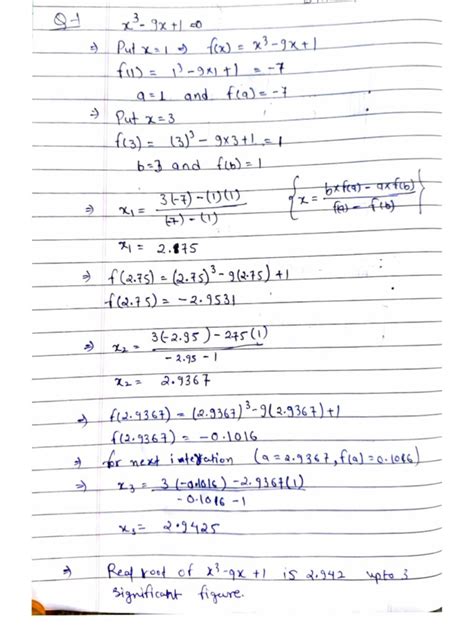 Q-1 x³ - 9x + 1 = 0
⇒ Put x = 1 ⇒ f(x) = x³ - 9x + 1
f(1) = 1³ - 9×1 + 1 = -7
a = 1 and f(a) = -7
⇒ Put x = 3
f(3) = (3)³ - 9×3 + 1 = 1
b = 3 and f(b) = 1
⇒ x₁ = 3(-7) - (1)(1) / (-7) - (1) { x = b×f(a) - a×f(b) / f(a) - f(b) }
x₁ = 2.75
⇒ f(2.75) = (2.75)³ - 9(2.75) + 1
f(2.75) = -2.9531
⇒ x₂ = 3(-2.95) - 275(1) / -2.95 - 1
x₂ = 2.9367
⇒ f(2.9367) = (2.9367)³ - 9(2.9367) + 1
f(2.9367) = -0.1016
⇒ for next interation (a = 2.9367, f(a) = 0.1016)
⇒ x₃ = 3(-0.1016) - 2.9367(1) / -0.1016 - 1
x₃ = 2.9425
⇒ Real root of x³ - 9x + 1 is 2.942 upto 3
significant figure.